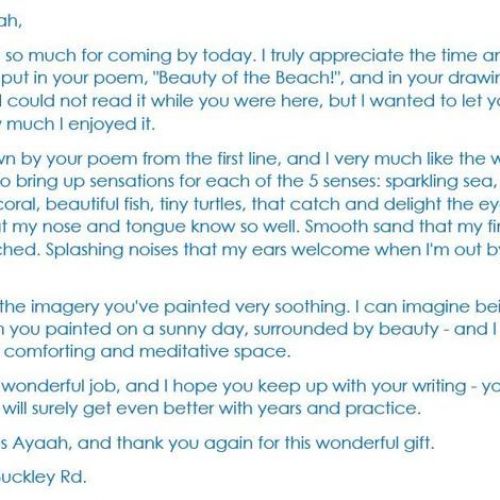 ah,
so much for coming by today. I truly appreciate the time an
put in your poem, "Beauty of the Beach!", and in your drawin
I could not read it while you were here, but I wanted to let yo
much I enjoyed it.
wn by your poem from the first line, and I very much like the w
o bring up sensations for each of the 5 senses: sparkling sea,
coral, beautiful fish, tiny turtles, that catch and delight the ey
at my nose and tongue know so well. Smooth sand that my fin
ched. Splashing noises that my ears welcome when I'm out by
the imagery you've painted very soothing. I can imagine bei
you painted on a sunny day, surrounded by beauty - and I
comforting and meditative space.
wonderful job, and I hope you keep up with your writing - yo
will surely get even better with years and practice.
s Ayaah, and thank you again for this wonderful gift.
Buckley Rd.